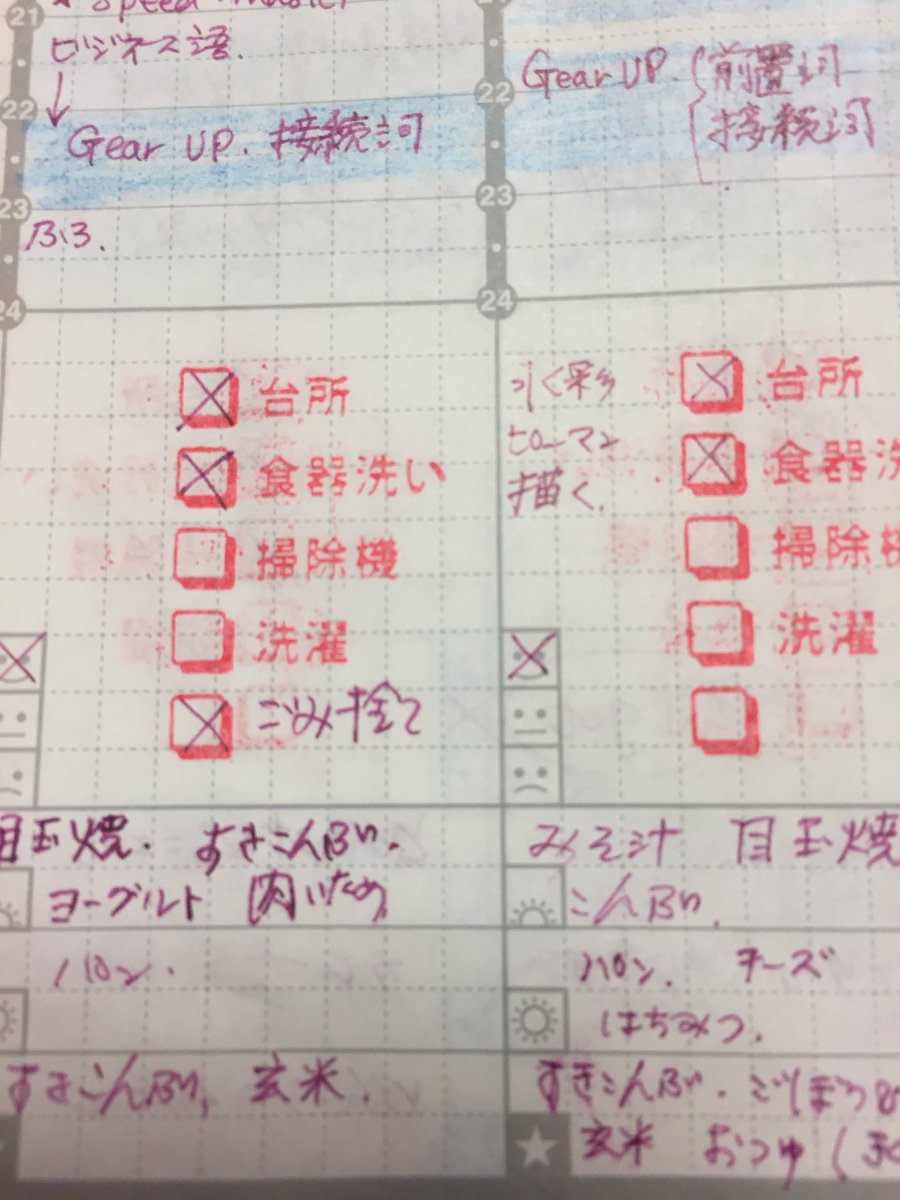 21
ビジネス語.
22
Gear UP. 接続詞
23
ふろ.
24
台所
食器洗い
掃除機
洗濯
ごみ捨て
目玉焼. すきこんぶ.
ヨーグルト 肉いため
パン.
すきこんぶ, 玄米.
22
Gear UP. 前置詞
接続詞
23
24
ピーマン
描く.
台所
食器洗
掃除機
洗濯
みそ汁 目玉焼
こんぶ.
パン. チーズ
はちみつ.
すきこんぶ. ごぼう
玄米 おつゆ